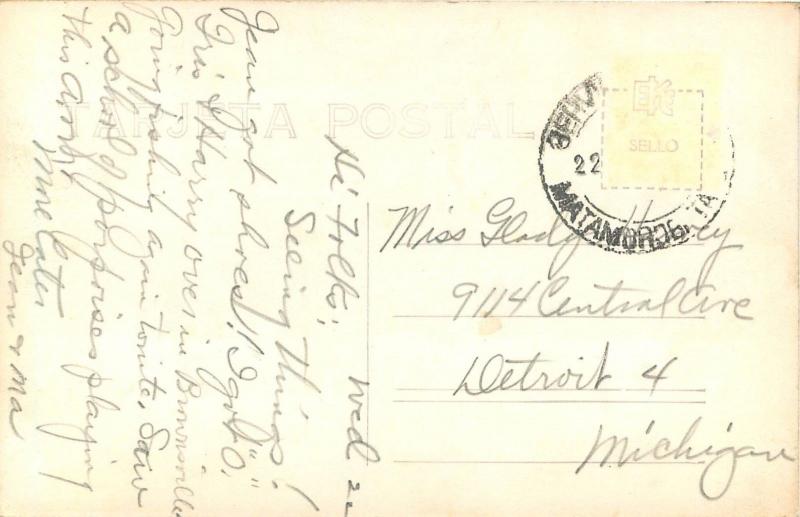 TARJETA POSTAL
SELLO
22
MATAMOROS, TA
Wed 2
Hi Folks;
Seeing Things!
Jean got shoes! I got "0".
Iris & Harry over in Brownsville
Going fishing again tonite. Saw
a school of porpoises playing
this
More Later
Jean & Ma
Miss Gladys
9114 Central Ave
Detroit 4
Michigan